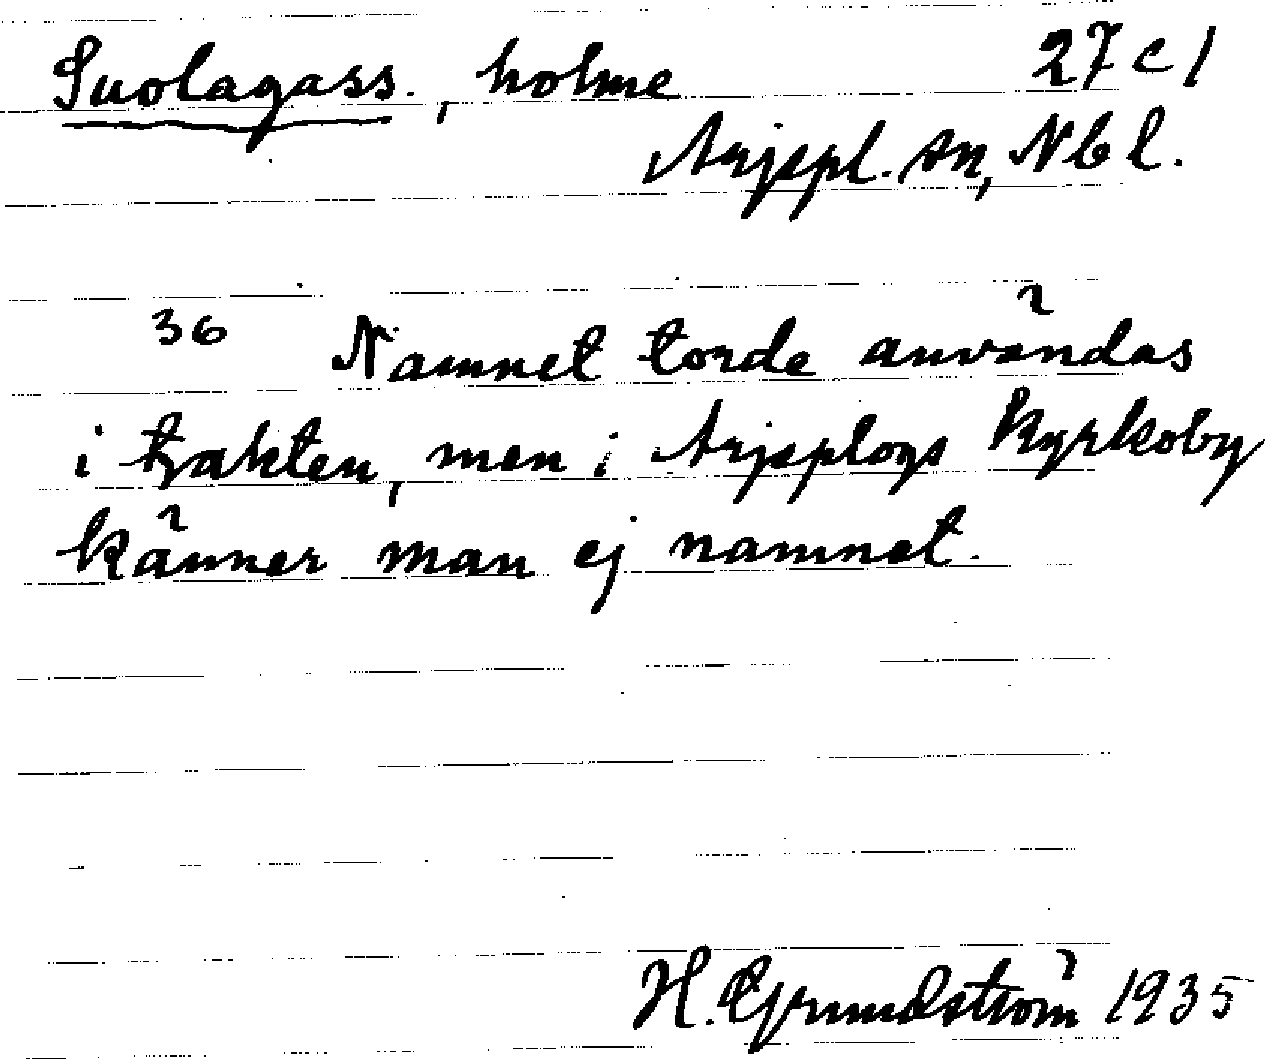 Suolagass., holme 27 c 1
Arjepl. sn, Nbl.
36 Namnet torde användas
i trakten, men i Arjeplogs kyrkoby
känner man ej namnet.
H. Grundström 1935